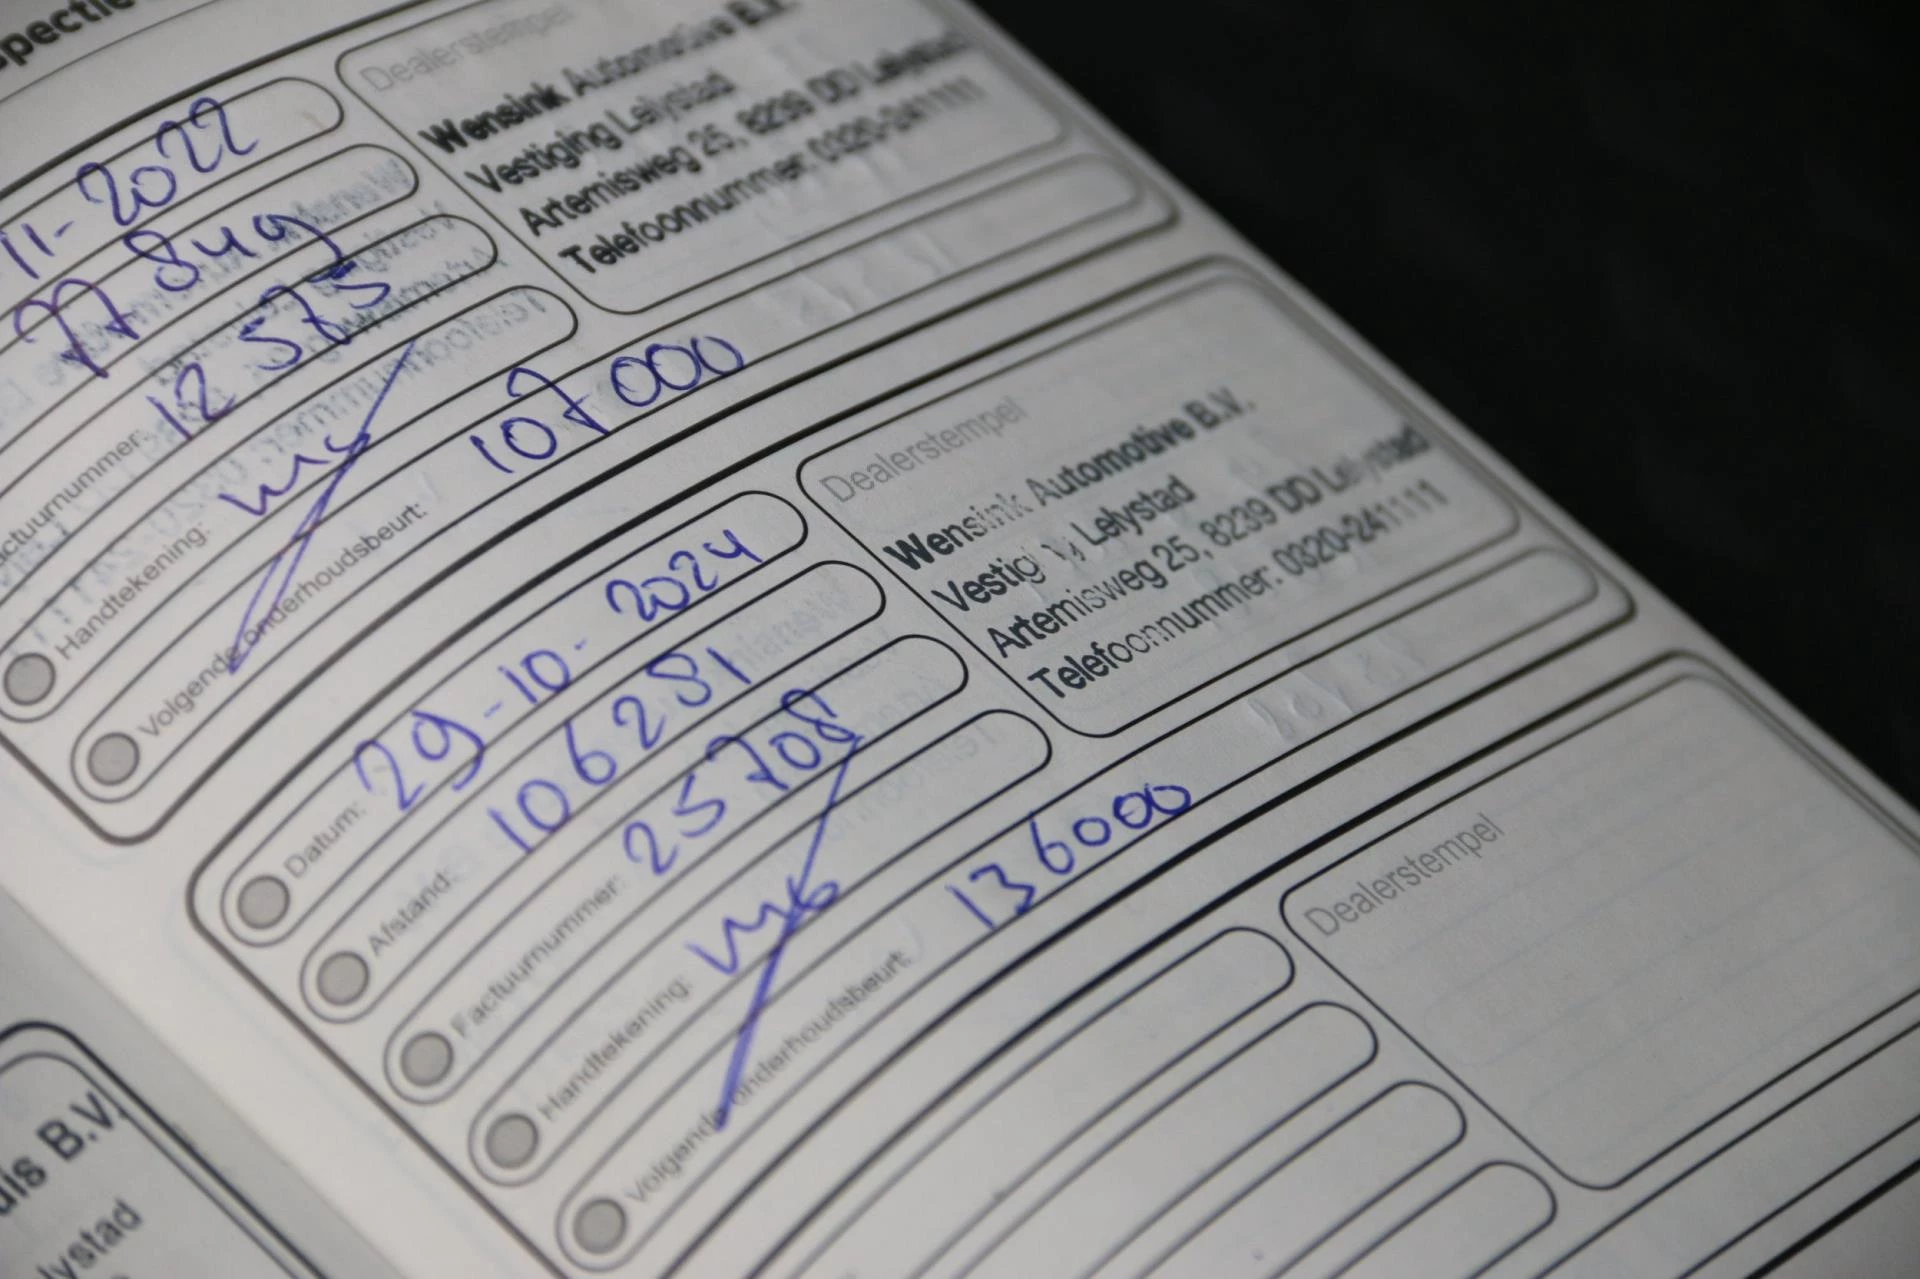 spectie
11-2022
77849
Factuurnummer: 12575
Handtekening:
Volgende onderhoudsbeurt: 107000
Dealerstempel
Wensink Automotive B.V.
Vestiging Lelystad
Artemisweg 25, 8239 DD Lelystad
Telefoonnummer: 0320-241111
Datum: 29-10-2024
Afstand: 106281
Factuurnummer: 25708
Handtekening:
Volgende onderhoudsbeurt: 136000
Dealerstempel
Wensink Automotive B.V.
Vestiging Lelystad
Artemisweg 25, 8239 DD Lelystad
Telefoonnummer: 0320-241111
Dealerstempel
uis B.V.
lystad